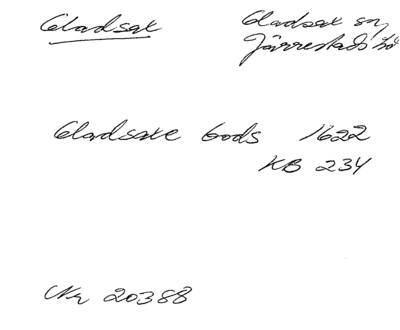 Gladsax
Gladsax sn,
Järrestads hd
Gladsaxe Gods 1622
KB 234
Nr 20388